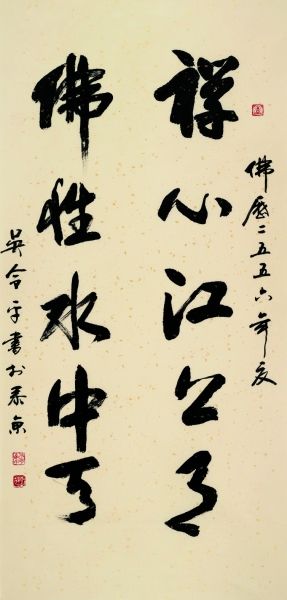 佛歷二五五六年夏
禅心江上月
佛性水中天
吳令平書於泰京